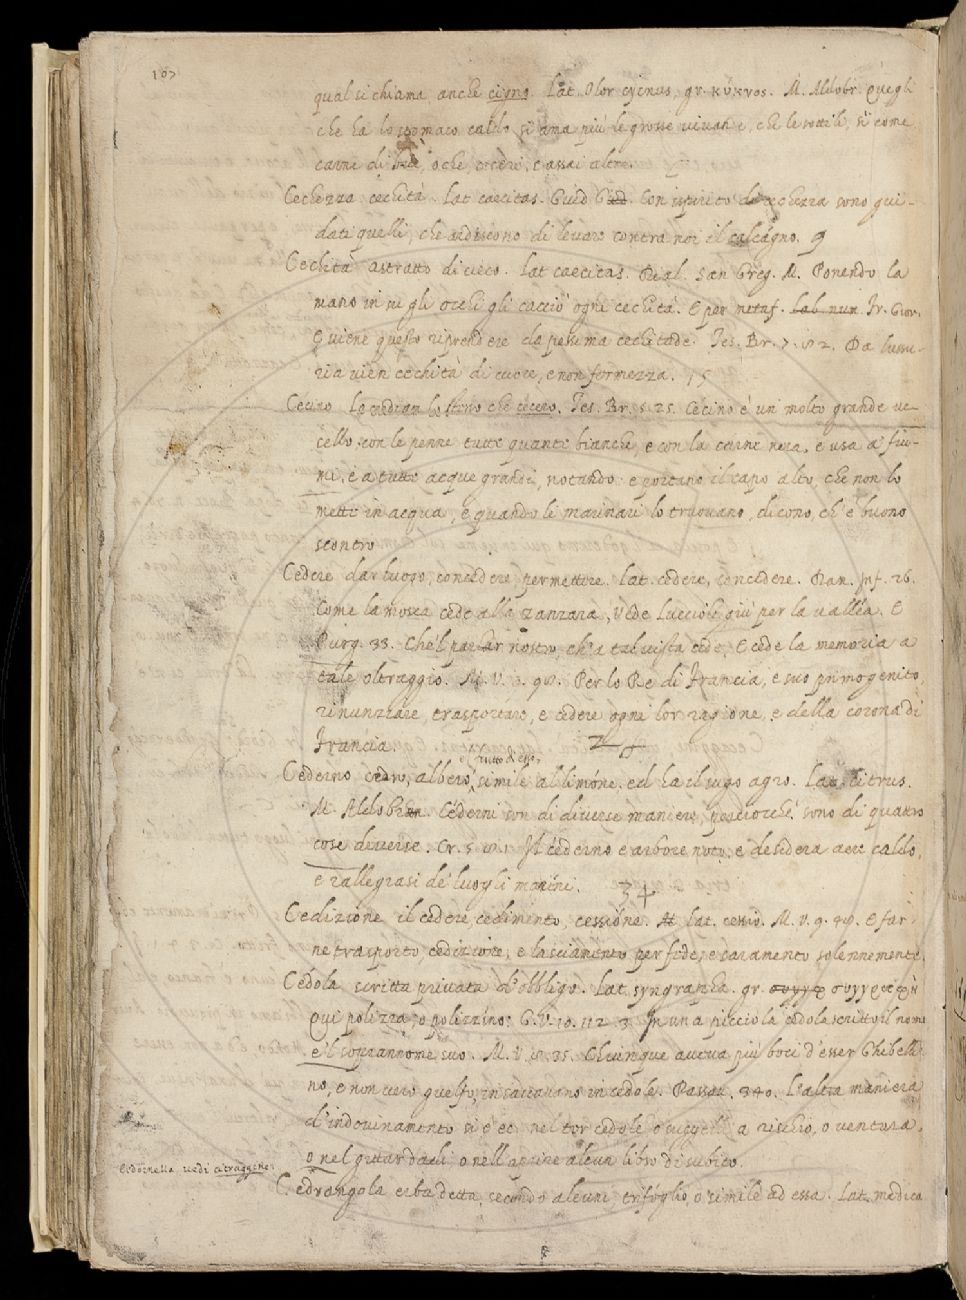 107
qual si chiama anche cigno. Lat. Olor cycnus, gr. κύκνος. M. Aldobr. Quegli
che ha lo stomaco caldo, si ama più le grosse vivande, che le sottili, si come
carni di bue, o che, ceceri, e assai altre.
Cechezza cechità. Lat caecitas. Guid G. Con ispirito di cechezza sono gui-
dati quelli, che ardiscono di levare contra noi il calcagno. 9
Cechità astratto di cieco. Lat caecitas. Dial. San Greg. M. Ponendo la
mano in su gli occhi gli cacciò ogni cechità. E per metaf. Fr. Giov.
E viene questo riprendere da pessima cechitade. Tes. Br. 7. 82. Da lussu-
ria vien cechità di cuore, e non fermezza. 15
Cecino Lo stesso che cecero. Tes. Br. 5. 25. Cecino è un molto grande uc-
cello, con le penne tutte quante bianche, e con la carne nera, e usa a fiu-
mi, e a tutte acque grandi, notando e portano il capo alto, che non lo
mette in acqua, e quando li marinari lo truovano, dicono, ch'è buono
scontro
Cedere dar luogo, concedere, permettere. Lat. cedere, concedere. Dan. Inf. 26.
Come la mosca cede alla zanzara, Vede lucciole giù per la vallea. E
Purg. 33. Che'l parlar nostro, ch'a tal vista cede, E cede la memoria a
tale oltraggio. M. V. 98. Per lo Re di Francia, e suo primogenito,
rinunziare, trasportare, e cedere ogni lor ragione, e della corona di
Francia.
e frutto d'esso
Cederno cedro, albero, simile al limóne, ed ha il sugo agro. Lat. citrus.
M. Aldobr. Cederni son di diverse maniere, perciocchè sono di quattro
cose diverse. Cr. 5. 8. 1 Il cederno è arbore noto, e desidera aere caldo,
e rallegrasi de' luoghi marini. 34
Cedizione il cedere, cedimento, cessione. Lat. cessio. M. V. 9. 98. E far-
ne trasporto, cedizione, e lasciamento per fede, e saramento solennemente.
Cedola scritta privata d'obbligo. Lat. syngrapha. gr. συγγρ συγγραφὴ
Qui polizza, o polizzino: G. V. 10. 112. 3. In una picciola cedola scritto il nome
e'l soprannome suo. M. V. 8. 25. Chiunque aveva più boci d'esser Ghibelli-
no, e non vero guelfo, insaccavano in cedole. Passav. 340. L'altra maniera
d'indovinamento si è ec. nel tor cedole a rischio, o ventura,
o nel gittar dadi, o nell'aprire alcun libro di subito.
Cedornella vedi citraggine.
Cedrangola erba detta, secondo alcuni trifoglio, o simile ad essa. Lat. medica